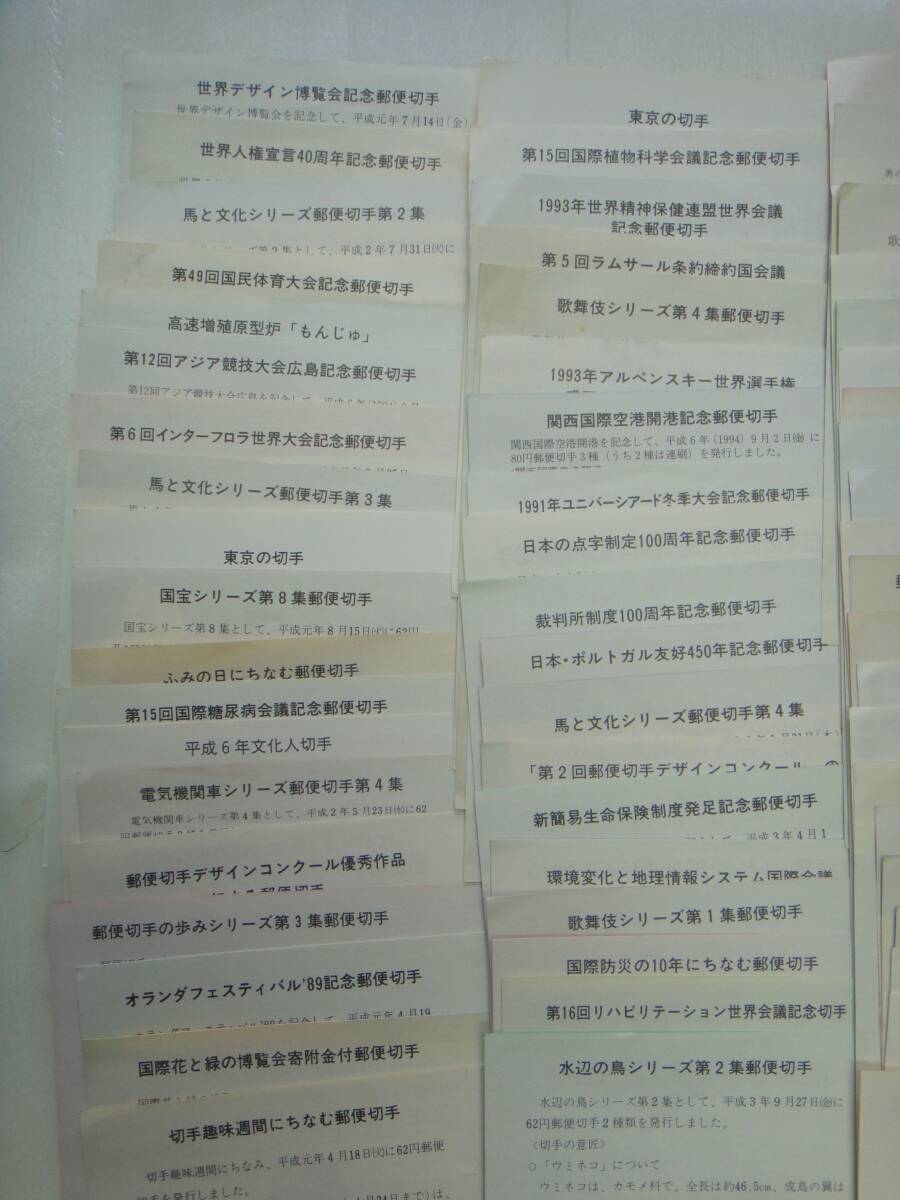 世界デザイン博覧会記念郵便切手
世界デザイン博覧会を記念して、平成元年7月14日(金)
世界人権宣言40周年記念郵便切手
馬と文化シリーズ郵便切手第2集
第2集として、平成2年7月31日㈫に
第49回国民体育大会記念郵便切手
高速増殖原型炉「もんじゅ」
第12回アジア競技大会広島記念郵便切手
第12回アジア競技大会広島を記念して、平成6年(1994)
第6回インターフローラ世界大会記念郵便切手
馬と文化シリーズ郵便切手第3集
東京の切手
国宝シリーズ第8集郵便切手
国宝シリーズ第8集として、平成元年8月15日㈫に62円
ふみの日にちなむ郵便切手
第15回国際糖尿病会議記念郵便切手
平成6年文化人切手
電気機関車シリーズ郵便切手第4集
電気機関車シリーズ第4集として、平成2年5月23日㈬に62
郵便切手デザインコンクール優秀作品
による郵便切手
郵便切手の歩みシリーズ第3集郵便切手
オランダフェスティバル'89記念郵便切手
オランダフェスティバル'89を記念して、平成元年4月19
国際花と緑の博覧会寄附金付郵便切手
切手趣味週間にちなむ郵便切手
切手趣味週間にちなみ、平成元年4月18日㈫に62円郵便
切手を発行しました。
東京の切手
第15回国際植物科学会議記念郵便切手
1993年世界精神保健連盟世界会議
記念郵便切手
第5回ラムサール条約締約国会議
歌舞伎シリーズ第4集郵便切手
1993年アルペンスキー世界選手権
関西国際空港開港記念郵便切手
関西国際空港開港を記念して、平成6年(1994)9月2日㈮に
80円郵便切手3種(うち2種は連刷)を発行しました。
1991年ユニバーシアード冬季大会記念郵便切手
日本の点字制定100周年記念郵便切手
裁判所制度100周年記念郵便切手
日本・ポルトガル友好450年記念郵便切手
馬と文化シリーズ郵便切手第4集
「第2回郵便切手デザインコンクール の
新簡易生命保険制度発足記念郵便切手
平成3年4月1
環境変化と地理情報システム国際会議
歌舞伎シリーズ第1集郵便切手
国際防災の10年にちなむ郵便切手
第16回リハビリテーション世界会議記念切手
水辺の鳥シリーズ第2集郵便切手
水辺の鳥シリーズ第2集として、平成3年9月27日㈮に
62円郵便切手2種類を発行しました。
〈切手の意匠〉
○「ウミネコ」について
ウミネコは、カモメ科で、全長は約46.5cm、成鳥の翼は